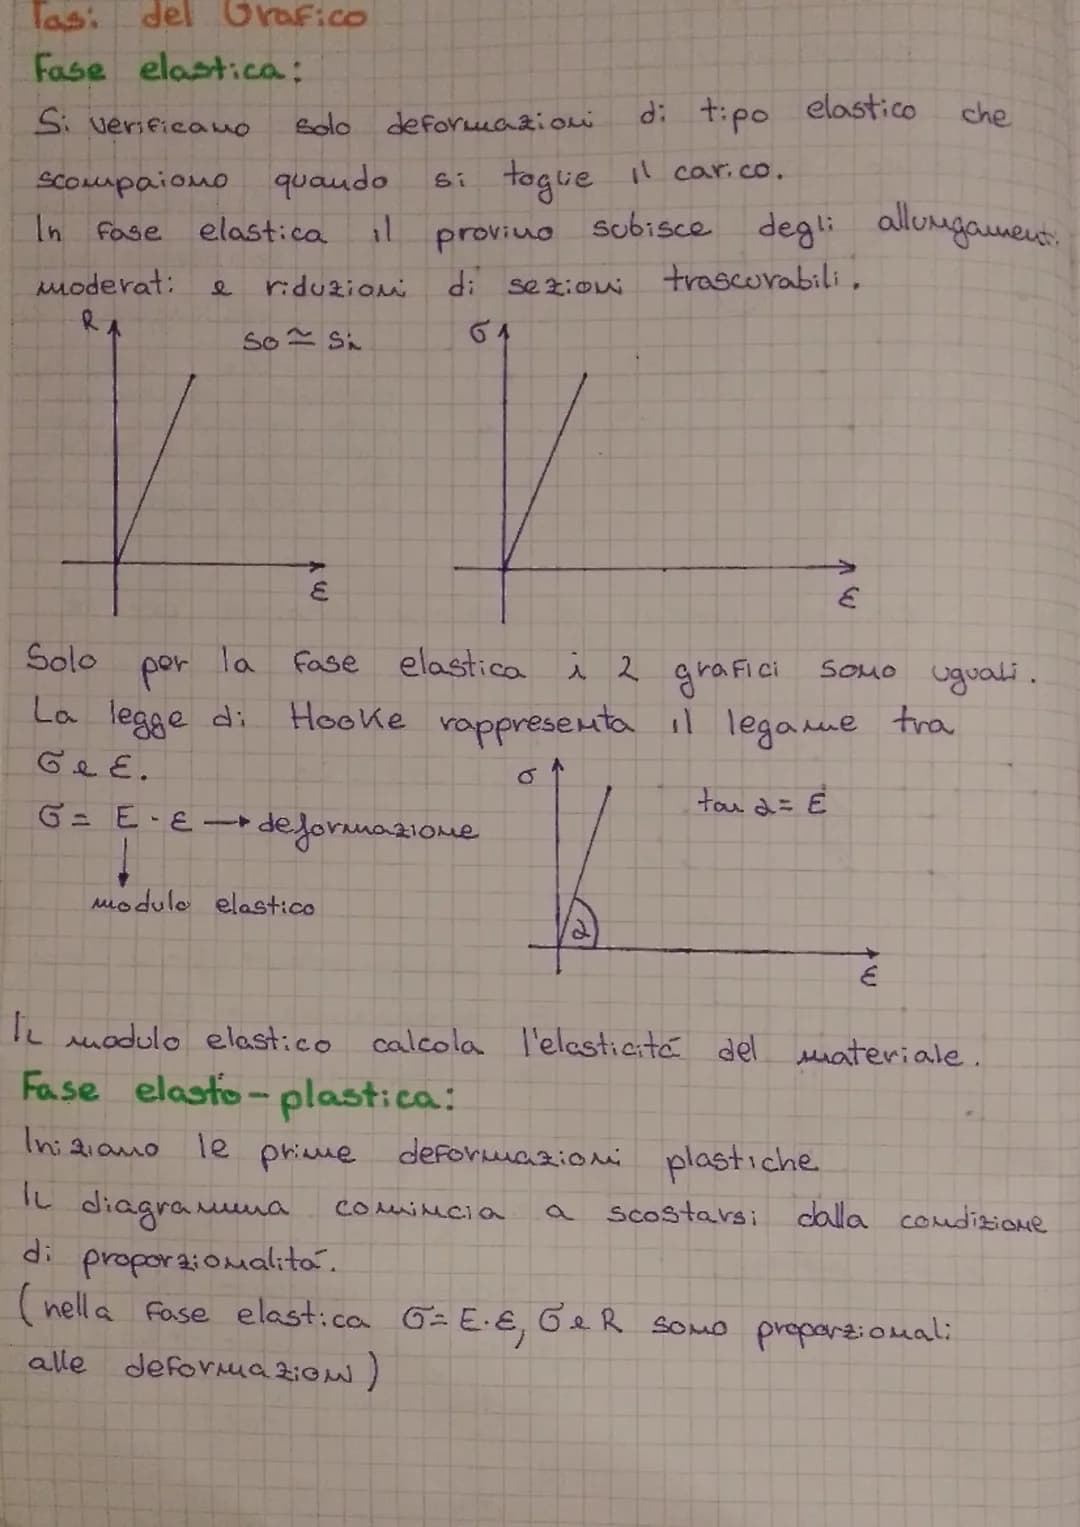 Fasi del Grafico
Fase elastica:
Si verificano solo deformazioni di tipo elastico che
scompaiono quando si toglie il carico.
In fase elastica il provino subisce degli allungamenti
moderati e riduzioni di sezioni trascurabili.
R
So ≃ Si
σ
ε
ε
Solo per la fase elastica i 2 grafici sono uguali.
La legge di Hooke rappresenta il legame tra
σ e ε.
σ
tan α = E
σ = E · ε → deformazione
↓
modulo elastico
α
ε
Il modulo elastico calcola l'elasticitá del materiale.
Fase elasto-plastica:
Iniziano le prime deformazioni plastiche
Il diagramma comincia a scostarsi dalla condizione
di proporzionalitá.
(nella fase elastica σ = E·ε, σ e R sono proporzionali
alle deformazioni)